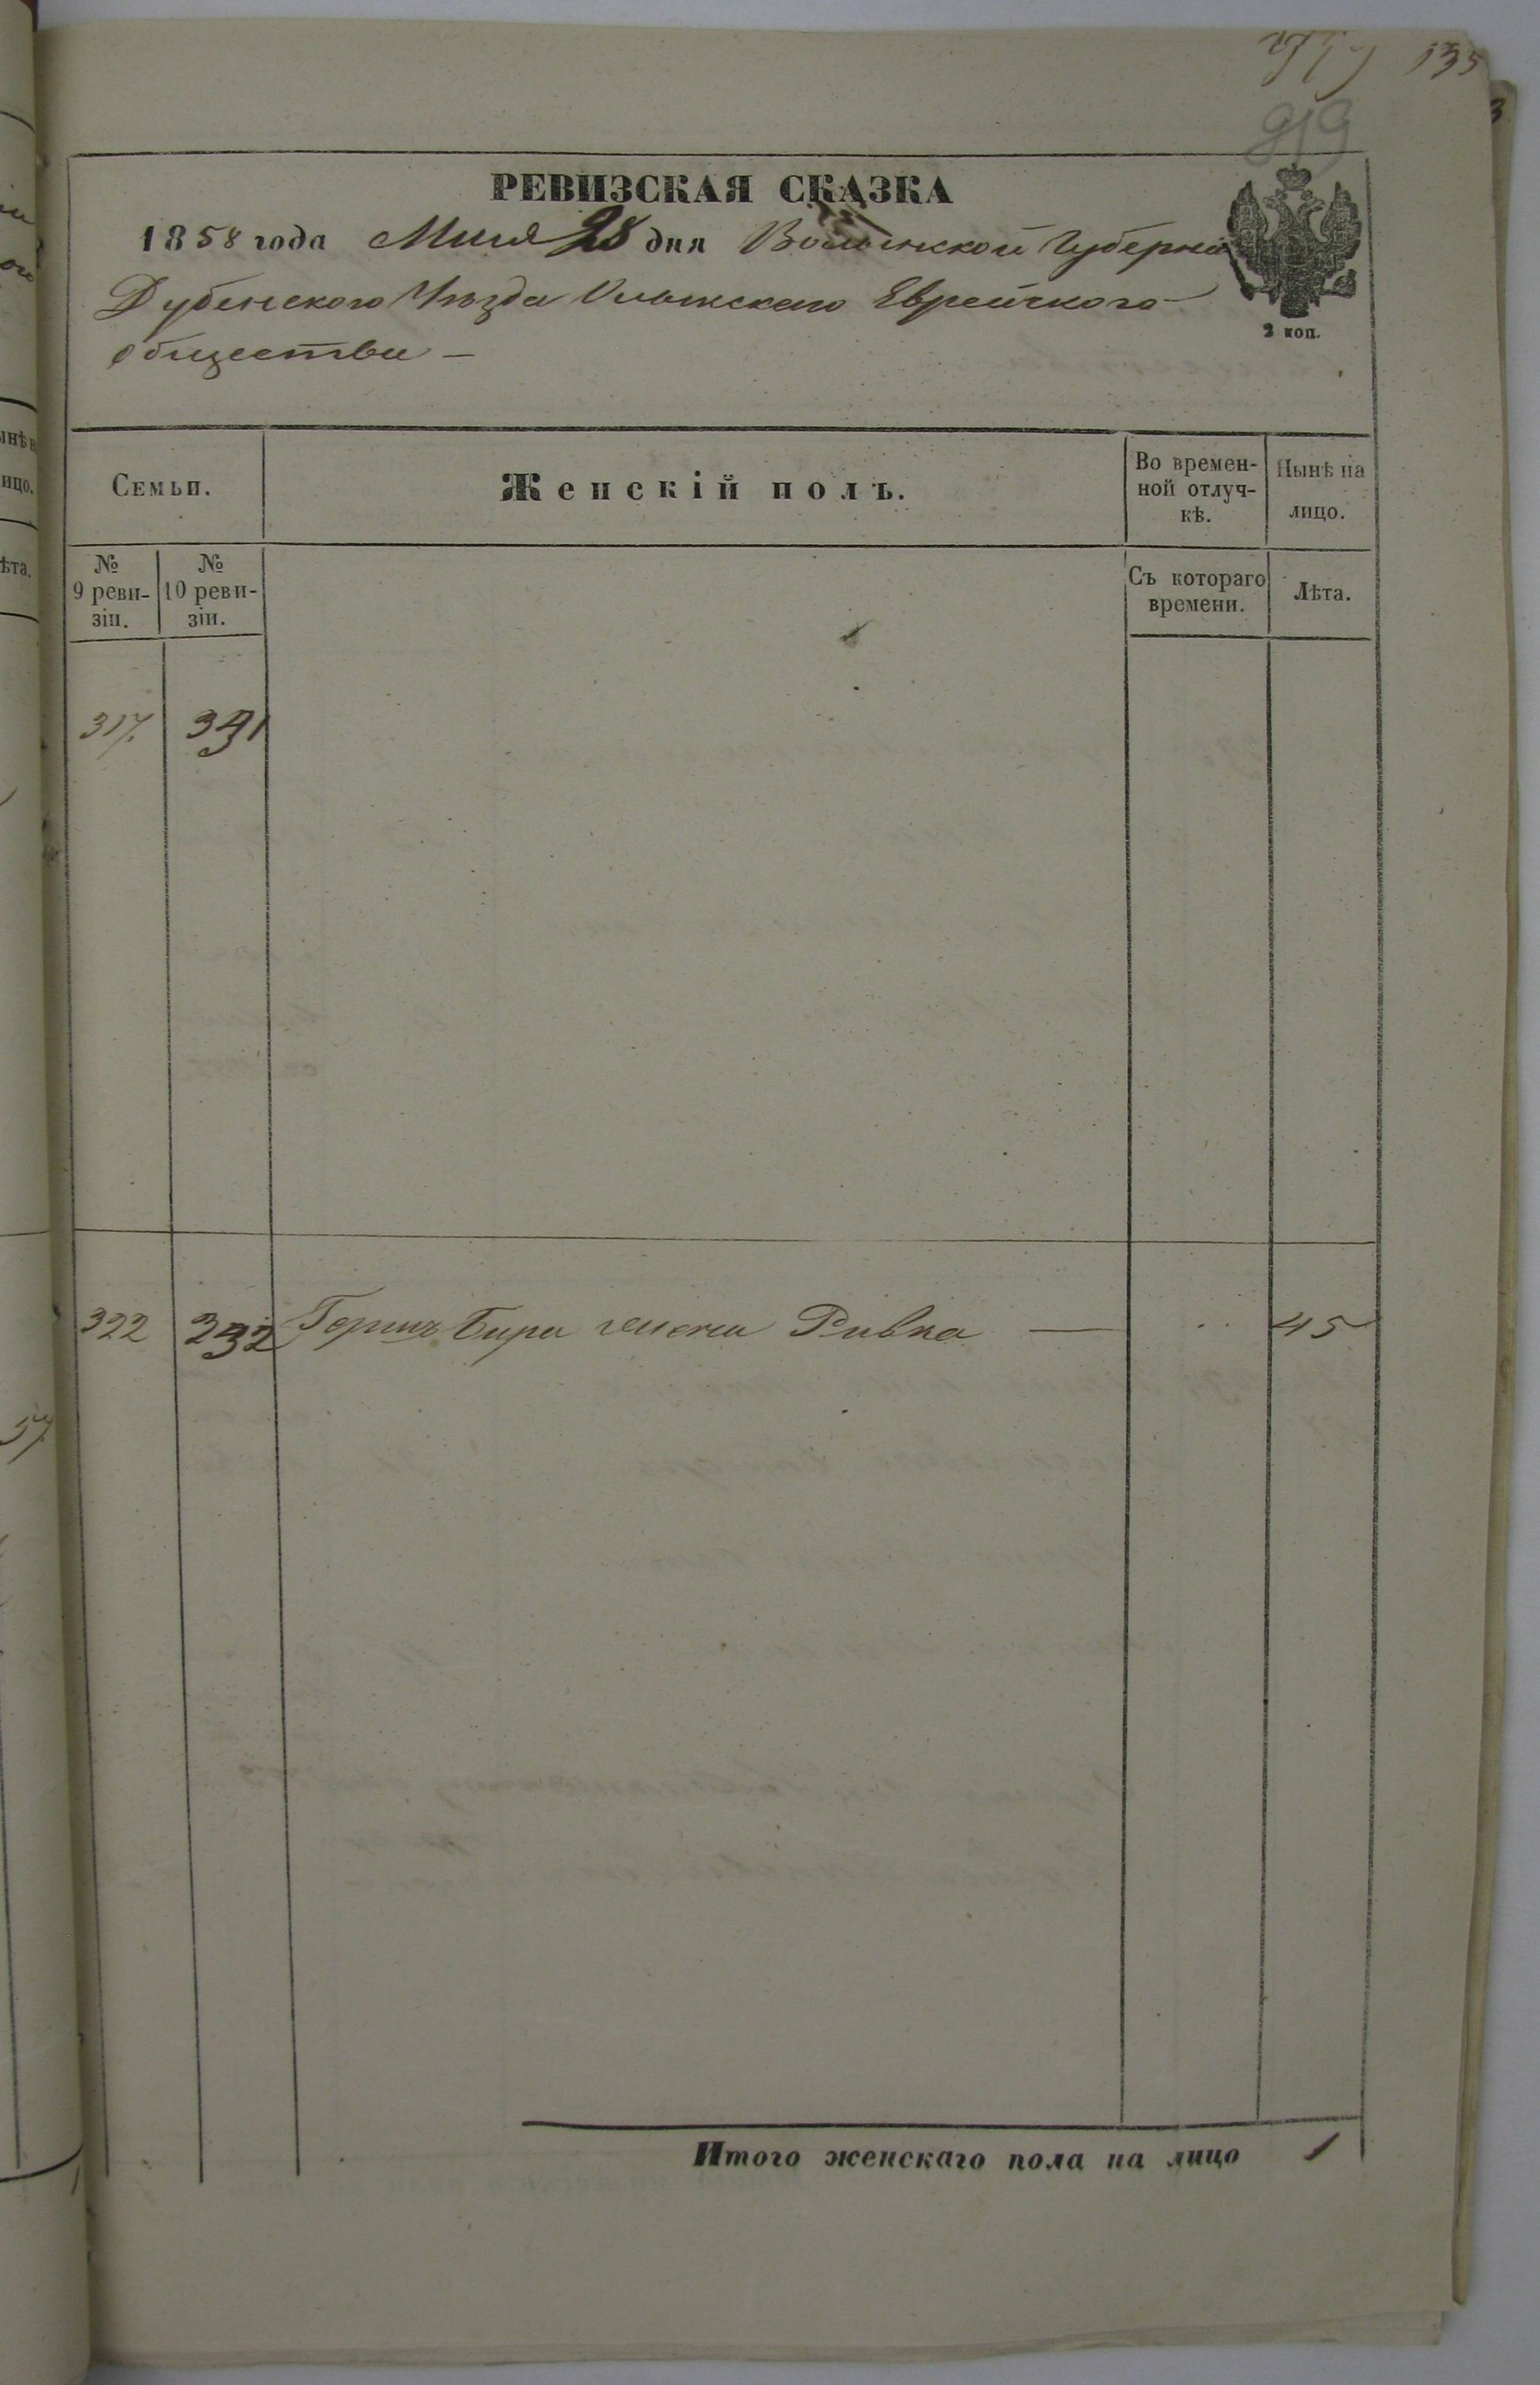 135
919
РЕВИЗСКАЯ СКАЗКА
1858 года Мая 28 дня Волынской Губернiи
Дубенского Уѣзда Олыкскаго Еврейского
общества —
2 коп.
Семьи.
Женскiй полъ.
Во времен-
ной отлуч-
кѣ.
Нынѣ на
лицо.
№
9 реви-
зiи.
№
10 реви-
зiи.
Съ котораго
времени.
Лѣта.
317.
322
Бера жена Ривка —
45
Итого женскаго пола на лицо 1